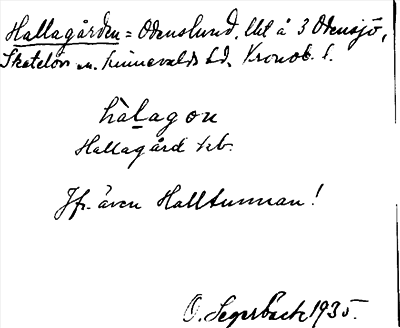 Hallagården = Odenslund, Utl å 3 Odensjö,
Skatelövs sn. Kinnevalds hd. Kronob. l.
hàlagon
Hallagård tεb.
Jfr även Halltunnan!
O. Segerbäck 1935.